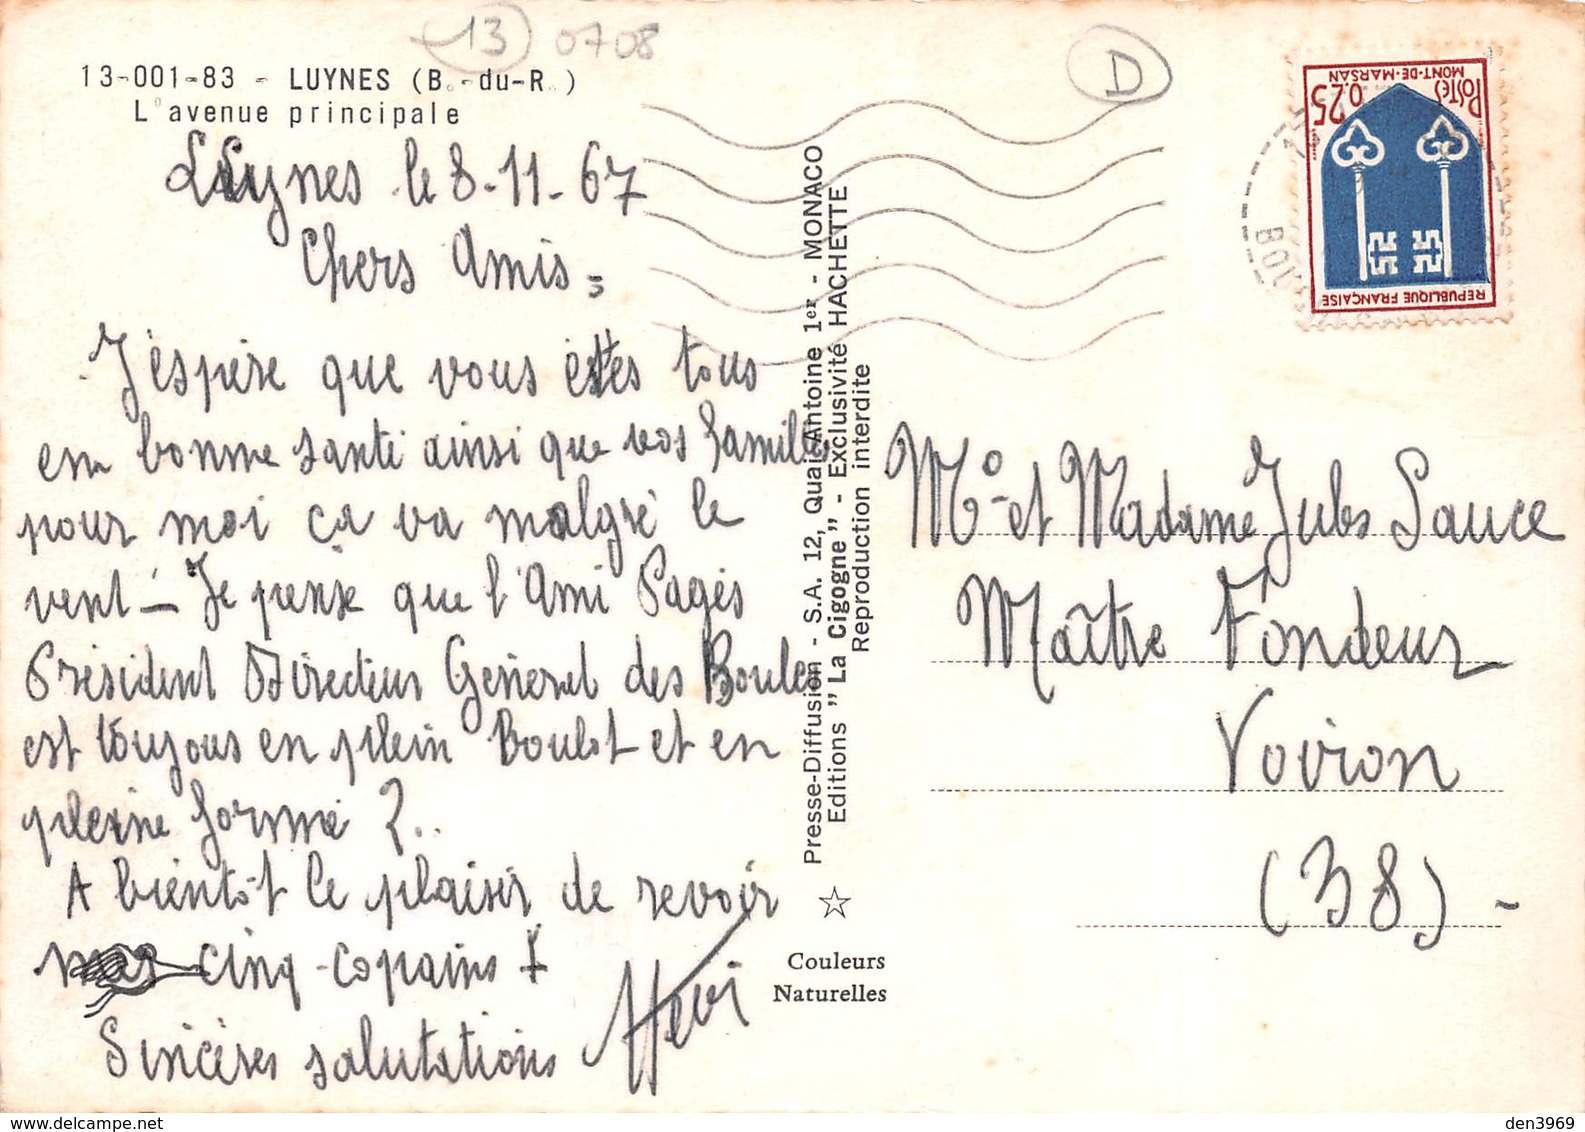 13 0708
D
13-001-83 - LUYNES (B.-du-R.)
L'avenue principale
Luynes le 8-11-67
Chers Amis =
J'éspère que vous êstes tous
en bonne santé ainsi que vos famille
pour moi ça va malgré le
vent - Je pense que l'Ami Pagès
Président Directeur Géneral des Boules
est toujous en plein Boulot et en
pleine forme ?..
A bientôt le plaisir de revoir
cinq copains !
Sincères salutations
Presse-Diffusion - S.A. 12, Quai Antoine 1er - MONACO
Editions "La Cigogne" - Exclusivité HACHETTE
Reproduction interdite
Couleurs
Naturelles
POSTES
0.25
MONT-DE-MARSAN
REPUBLIQUE FRANÇAISE
Mr et Madame Jules Sauce
Maître Fondeur
Voiron
(38) -
den3969